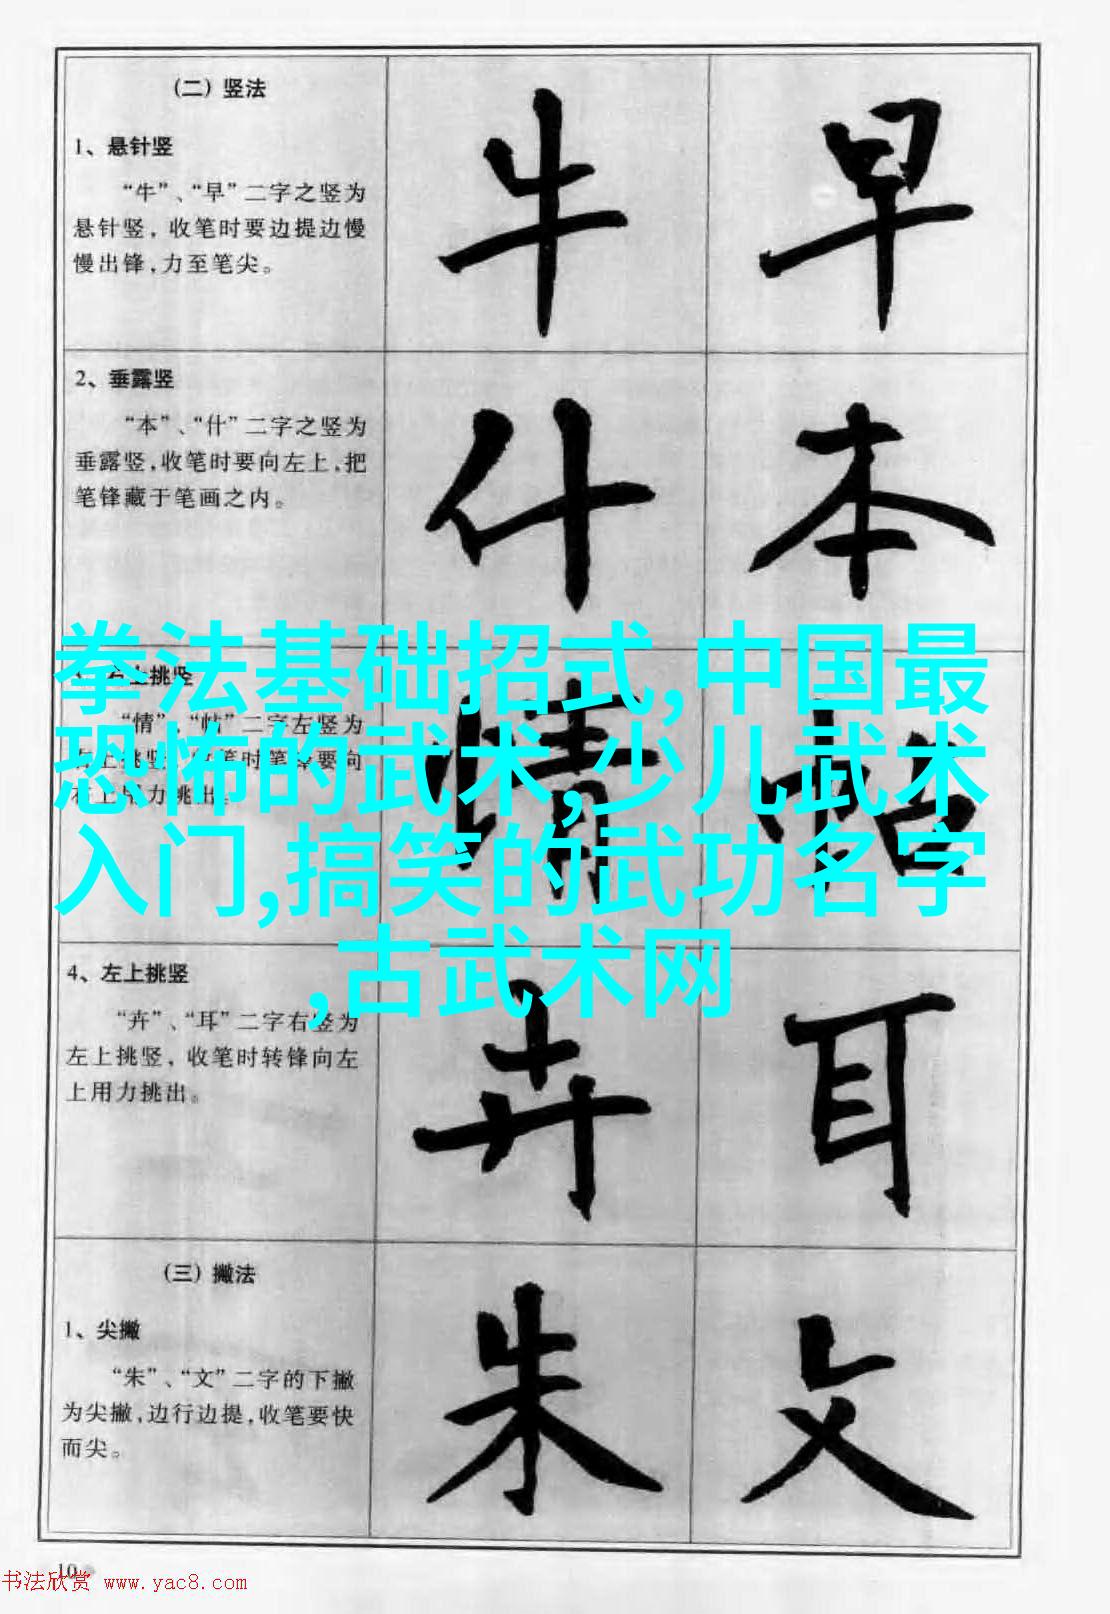 (二) 竖法
1、悬针竖
“牛”、“早”二字之竖为
悬针竖, 收笔时要边提边慢
慢出锋,力至笔尖。
牛 早
2、垂露竖
“本”、“什”二字之竖为
垂露竖,收笔时要向左上,把
笔锋藏于笔画之内。
什 本
拳法基础招式,中国最
恐怖的武术,少儿武术
入门,搞笑的武功名字
,古武术网
右上挑竖
“情”、“帖”二字左竖为
情 帖
4、左上挑竖
“卉”、“耳”二字右竖为
左上挑竖, 收笔时转锋向左
上用力挑出。
卉 耳
(三) 撇法
1、尖撇
“朱”、“文”二字的下撇
为尖撇,边行边提,收笔要快
而尖。
朱 文
10
书法欣赏 www.yac8.com